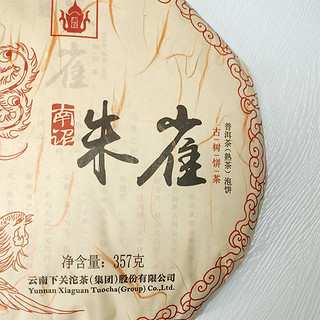 南诏
朱雀
古树饼茶
普洱茶(熟茶)泡饼
净含量：357克
云南下关沱茶(集团)股份有限公司
Yunnan Xiaguan Tuocha(Group) Co.,Ltd.